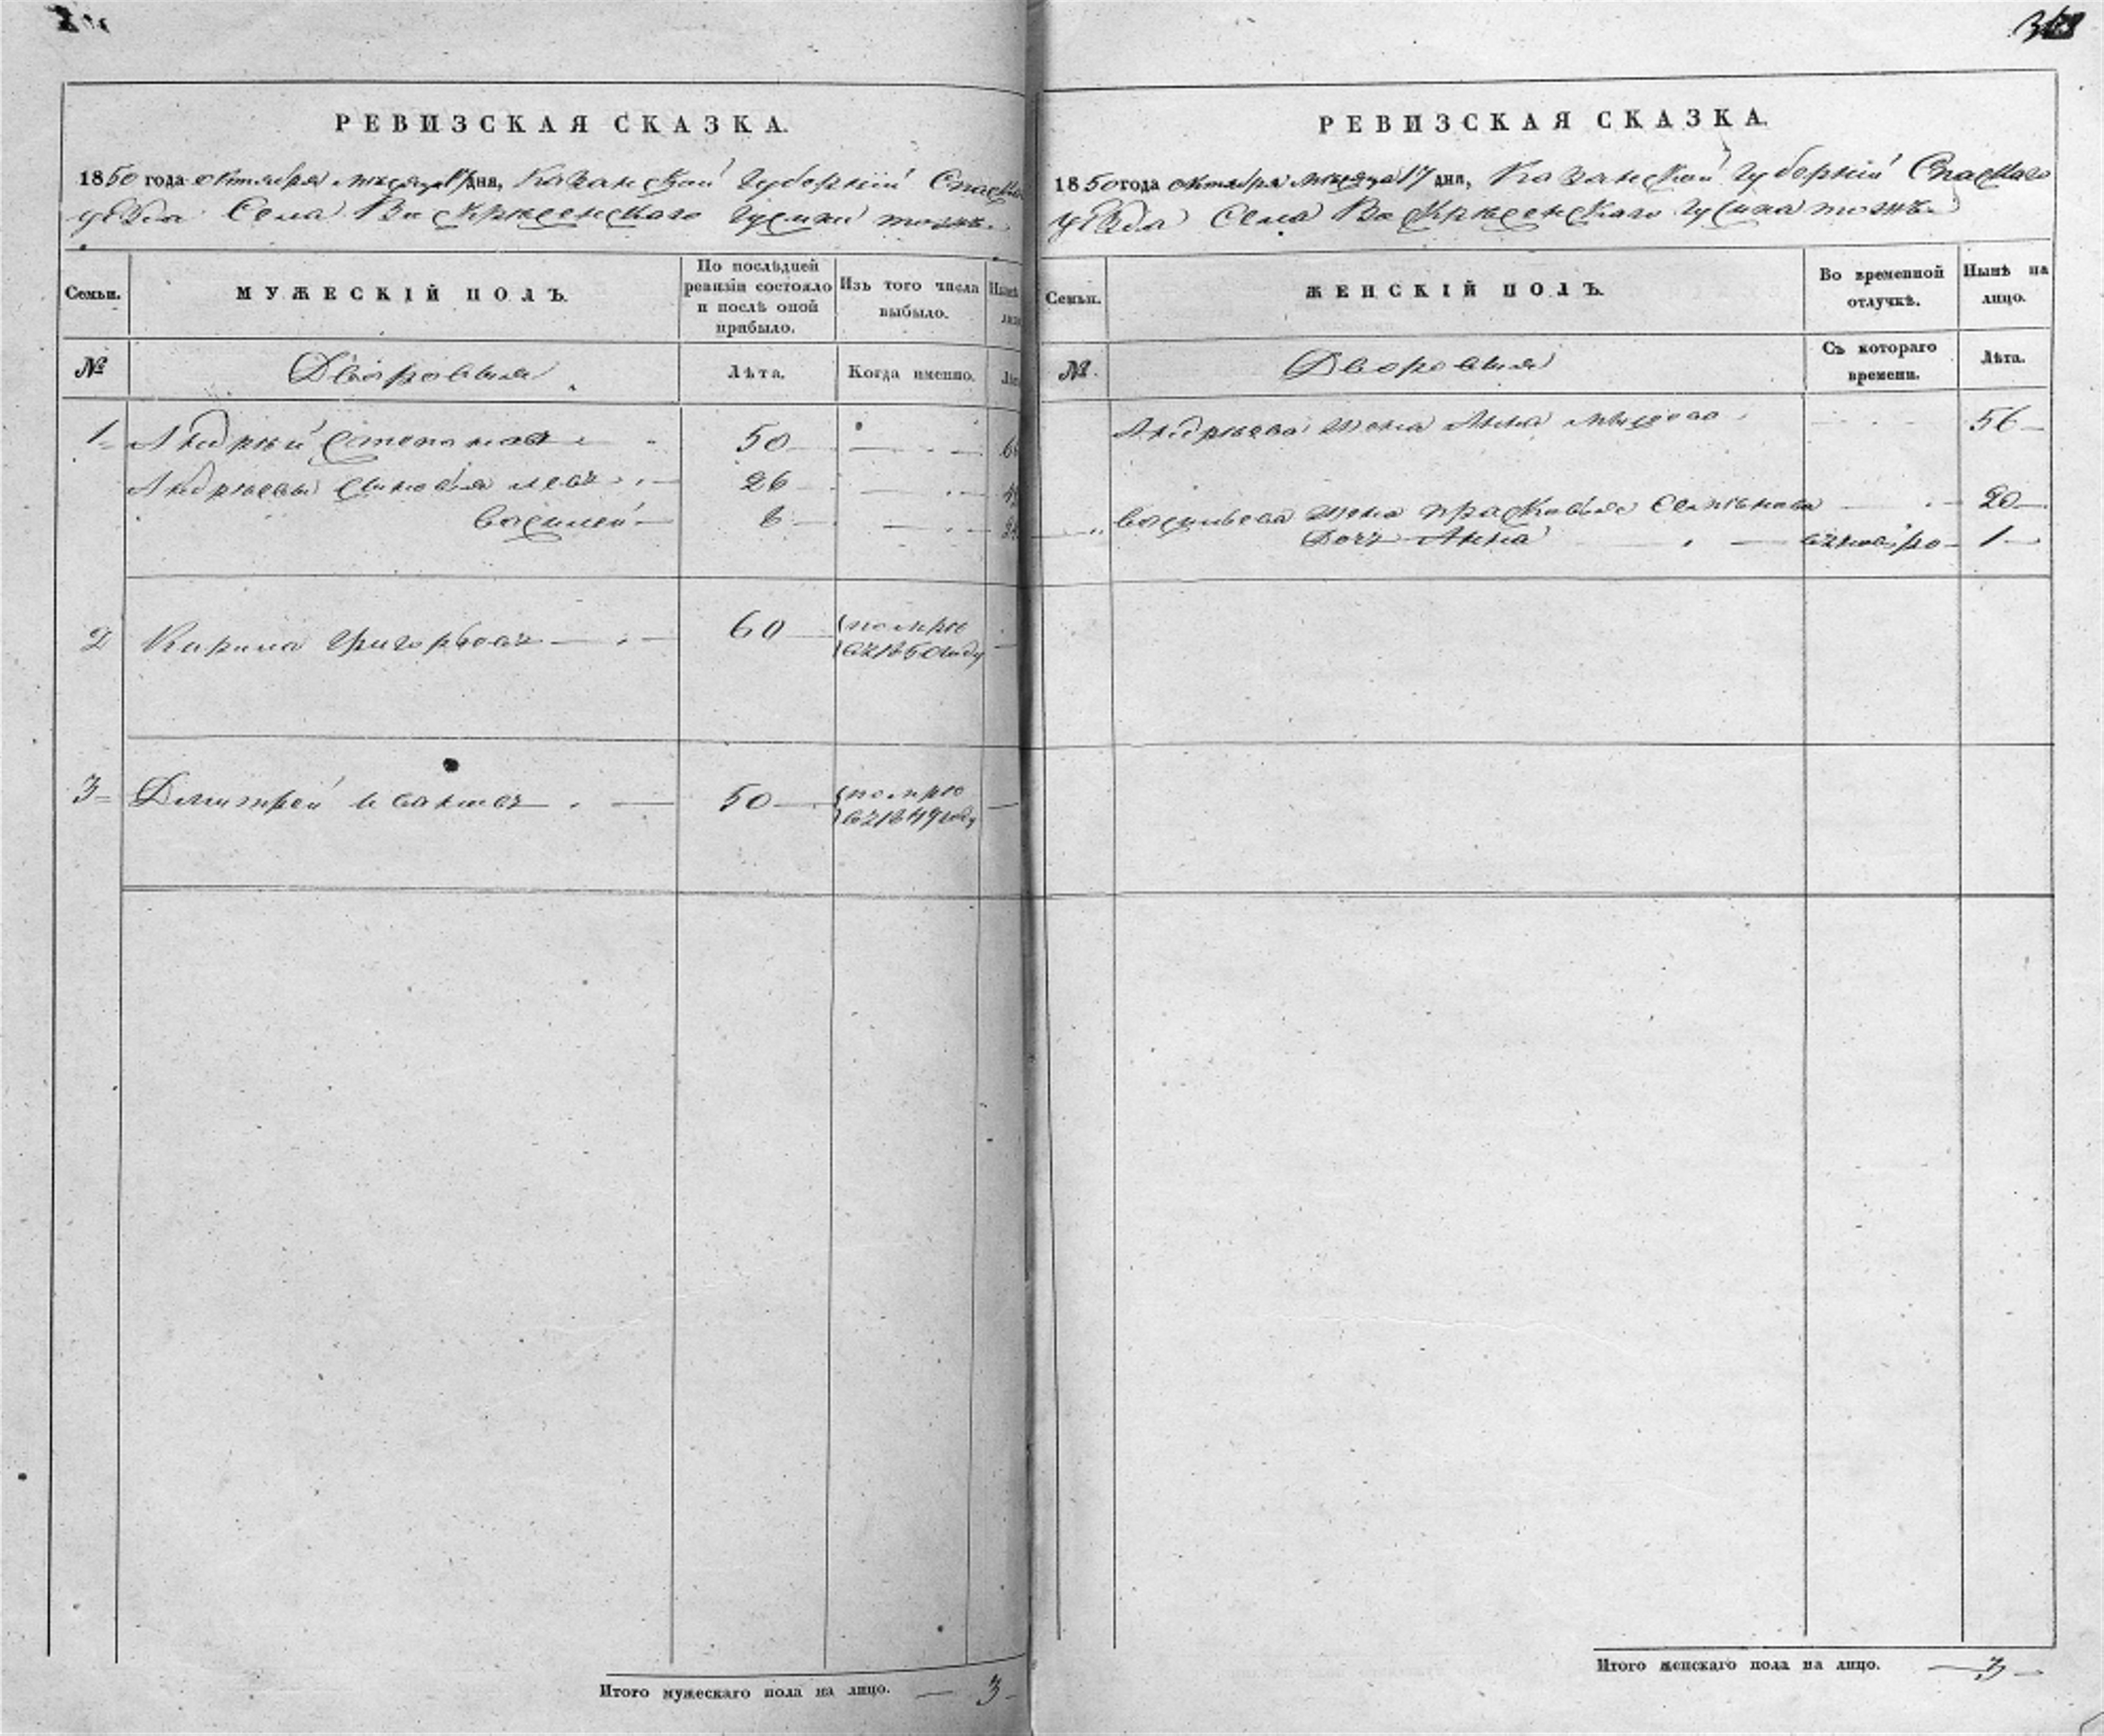 РЕВИЗСКАЯ СКАЗКА.
1850 года октября месяца дня, Казанской Губернiи Спаска
уѣзда Села Воскресенскаго тожъ.
Семьи.
МУЖЕСКIЙ ПОЛЪ.
По послѣдней ревизiи состояло и послѣ оной прибыло.
Изъ того числа выбыло.
№
Дворовыя
Лѣта.
Когда именно.
1 Андрей Степановъ 50
Андреевы сыновья 26
Василей 8
2 Кирила Григорьевъ 60 помре
въ 1850 году
3 Дмитрей Ивановъ 50 помре
въ 1849 году
Итого мужескаго пола на лицо. 3
РЕВИЗСКАЯ СКАЗКА.
1850 года октября месяца 17 дня, Казанской Губернiи Спаскаго
уѣзда Села Воскресенскаго тожъ
Семьи.
ЖЕНСКIЙ ПОЛЪ.
Во временной отлучкѣ.
Нынѣ на лицо.
№
Дворовыя
Съ котораго времени.
Лѣта.
Андреева жена Анна 56
Васильева жена Прасковья Семенова 20
Дочь Анна 1
Итого женскаго пола на лицо. 3